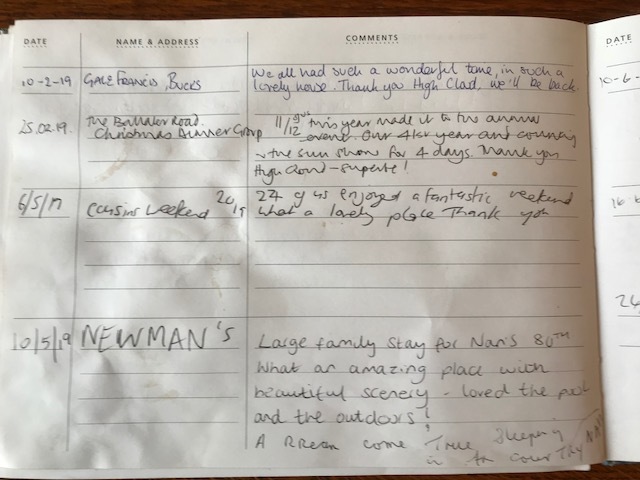 DATE NAME & ADDRESS COMMENTS DATE
10-2-19 GALE FRANCIS, BUCKS We all had such a wonderful time, in such a
lovely house. Thank you High Clad, we'll be back.
25.02.19. The Road 11/12 of us this year made it to the annual
Christmas Dinner Group event. Our 41st year and counting
& the sun shone for 4 days. Thank you
High - superb!
6/5/19 Cousins weekend 2019 22 of us enjoyed a fantastic weekend
what a lovely place Thank you
10/5/19 NEWMAN'S Large family stay for Nan's 80TH
What an amazing place with
beautiful scenery - loved the pool
and the outdoors!
A Dream come True Sleeping
in the country NAN
10-6
16
24